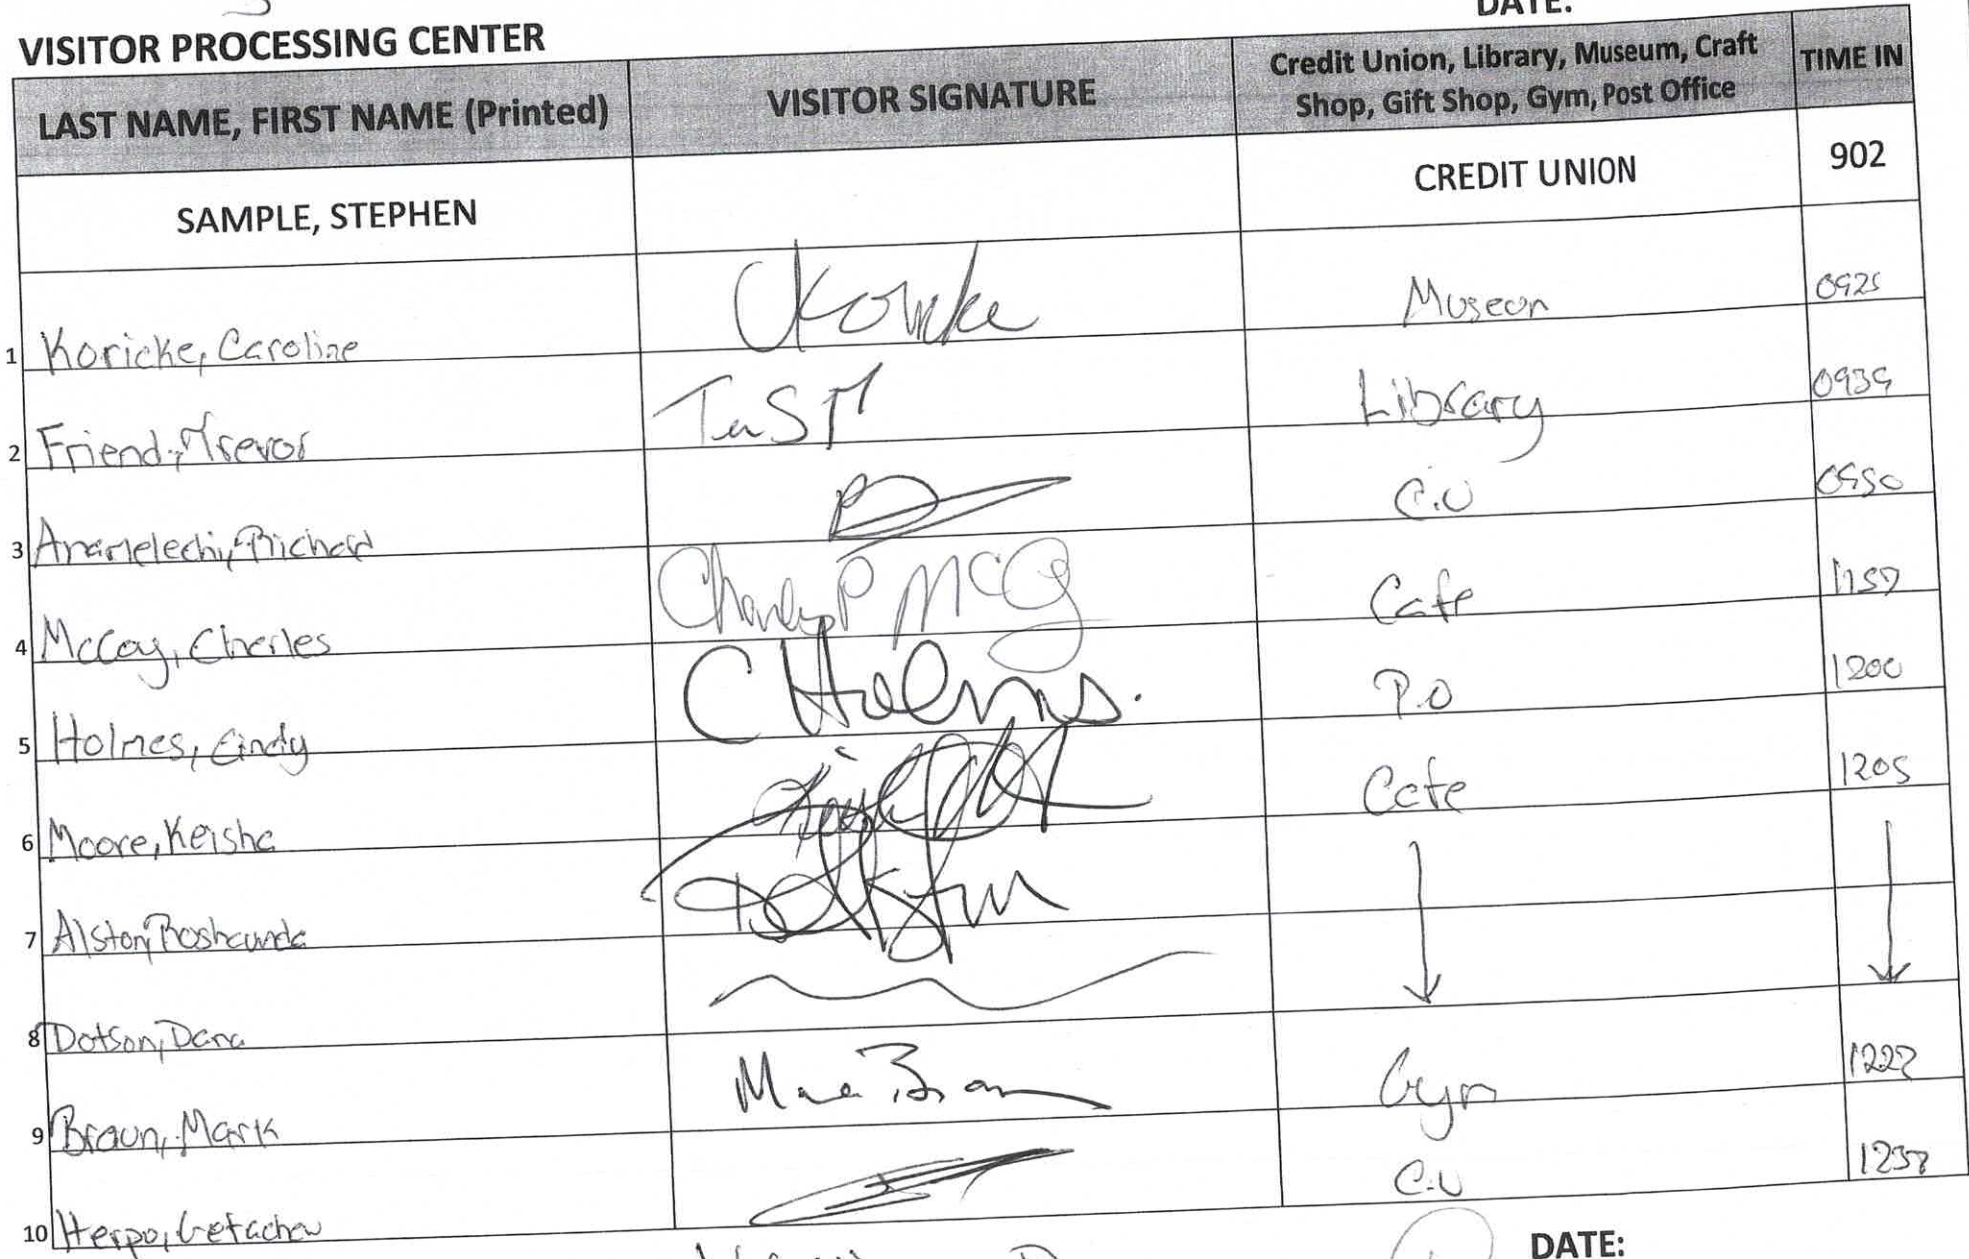 DATE:
VISITOR PROCESSING CENTER
LAST NAME, FIRST NAME (Printed) VISITOR SIGNATURE Credit Union, Library, Museum, Craft Shop, Gift Shop, Gym, Post Office TIME IN
SAMPLE, STEPHEN CREDIT UNION 902
1 Koricke, Caroline CKoricke Museum 0925
2 Friend, Trevor Library 0939
3 Richard C.U 0950
4 McCoy, Charles Charles P McCoy Cafe 1157
5 Holmes, Cindy C Holmes. P.O 1200
6 Moore, Keisha Cafe 1205
7 Alston, Roshaunda
8 Dotson, Dana
9 Braun, Mark Gym 1227
10 Herpo, Getachew C.U 1237
DATE: